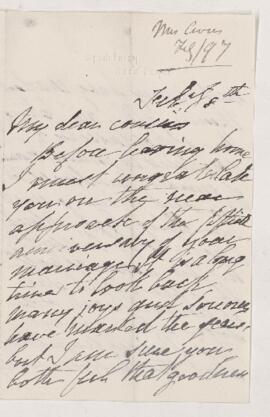 Mrs
Feb/97
Feby 8th
My dear cousin
Before leaving home
I must congratulate
you on the near
approach of the fiftieth
anniversary of your
marriage, it is a long
time to look back
many joys and sorrows
have marked the years
but I am sure you
both feel that goodness